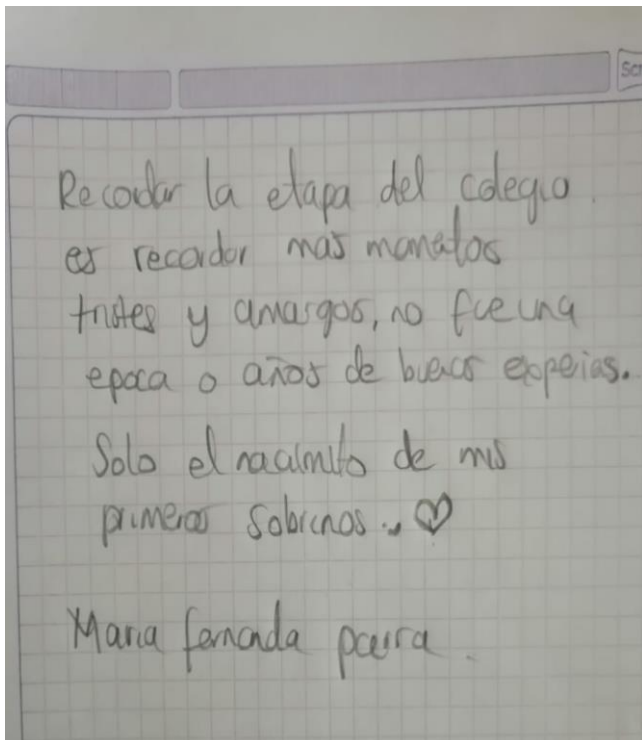 Recodar la etapa del colegio.
es recordor mas monetos
tristes y amargos, no fue una
epoca o años de buenas expeias.
Solo el nacimito de mis
primeros sobrinos.. ♡
Maria fernanda